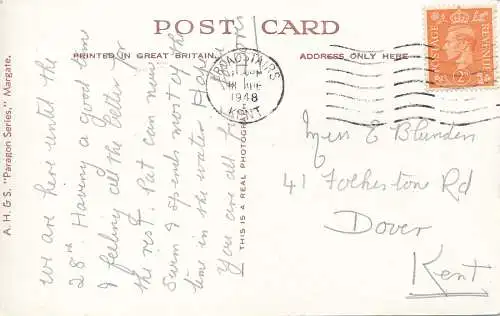 POST CARD
PRINTED IN GREAT BRITAIN.
ADDRESS ONLY HERE
A. H. & S. "Paragon Series," Margate.
THIS IS A REAL PHOTOGRAPH
We are here until the
28th. Having a good time
& feeling all the better for
the rest. Pat can now
Swim & spends most of the
time in the water. Hope
You are all
BROADSTAIRS
1948
KENT
POSTAGE
REVENUE
2D
Miss E Blunden
41 Folkestone Rd
Dover
Kent